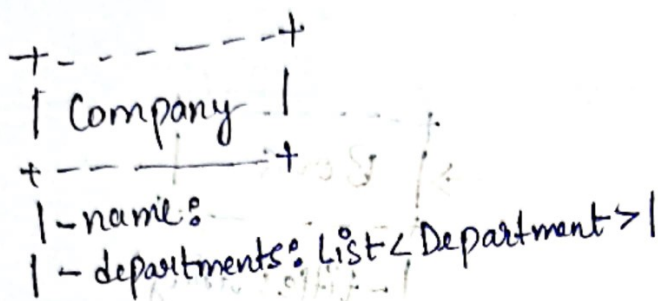 +- - - - - -+
| Company |
+- ——— -+
|-name:
|- departments: List<Department>|